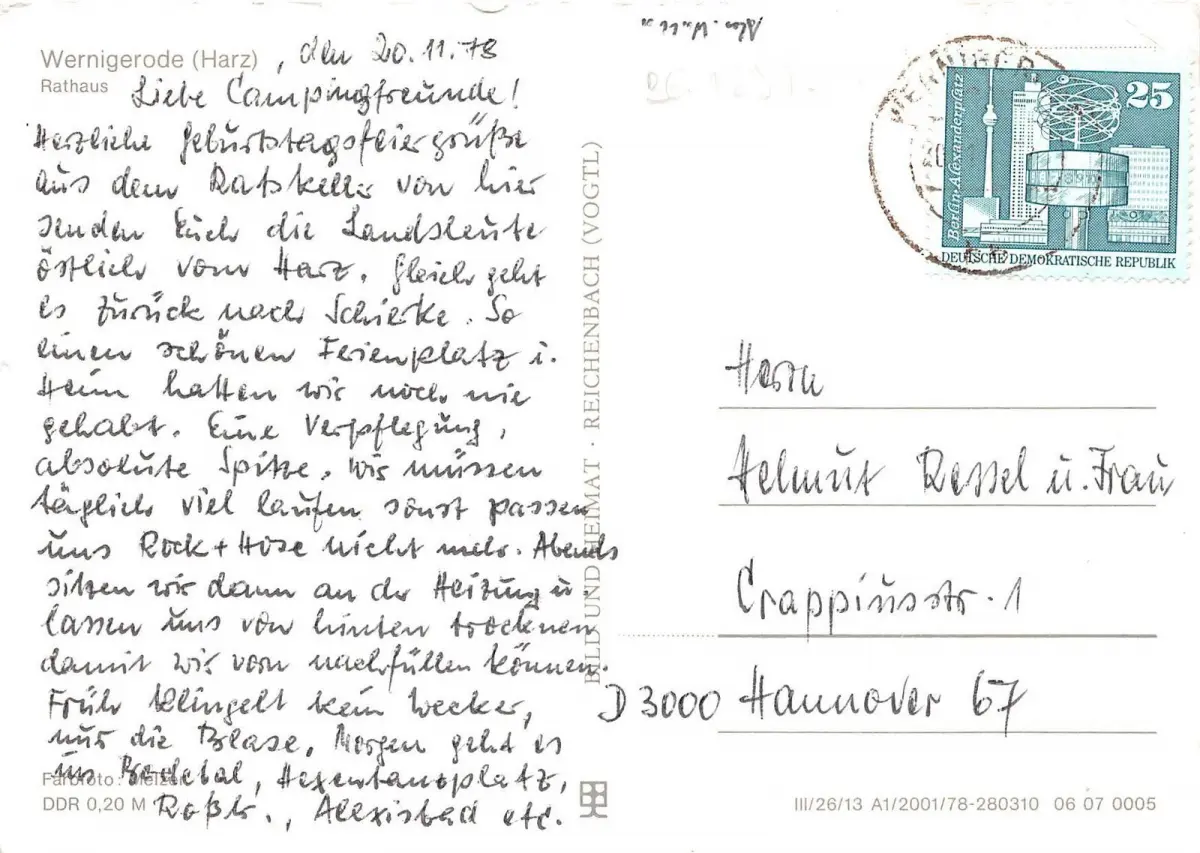 Wernigerode (Harz) , den 20.11.78
Rathaus
Liebe Campingfreunde!
Herzliche Geburtstagsfeiergrüße
aus dem Ratskeller von hier
senden Euch die Landsleute
östlich vom Harz. Gleich geht
es zurück nach Schierke. So
einen schönen Ferienplatz u.
Heim hatten wir noch nie
gehabt. Eine Verpflegung,
absolute Spitze. Wir müssen
täglich viel laufen sonst passen
uns Rock + Hose nicht mehr. Abends
sitzen wir dann an der Heizung u.
lassen uns von hinten trocknen
damit wir vorn nachfüllen können.
Früh klingelt kein Wecker,
nur die Blase. Morgen geht es
ins Bodetal, Hexentanzplatz,
Roßtr., Alexisbad etc.
Farbfoto:
DDR 0,20 M
BILD UND HEIMAT · REICHENBACH (VOGTL)
25
Berlin-Alexanderplatz
DEUTSCHE DEMOKRATISCHE REPUBLIK
Herrn
Helmut Ressel u. Frau
Crappiusstr. 1
D 3000 Hannover 67
III/26/13 A1/2001/78-280310 06 07 0005